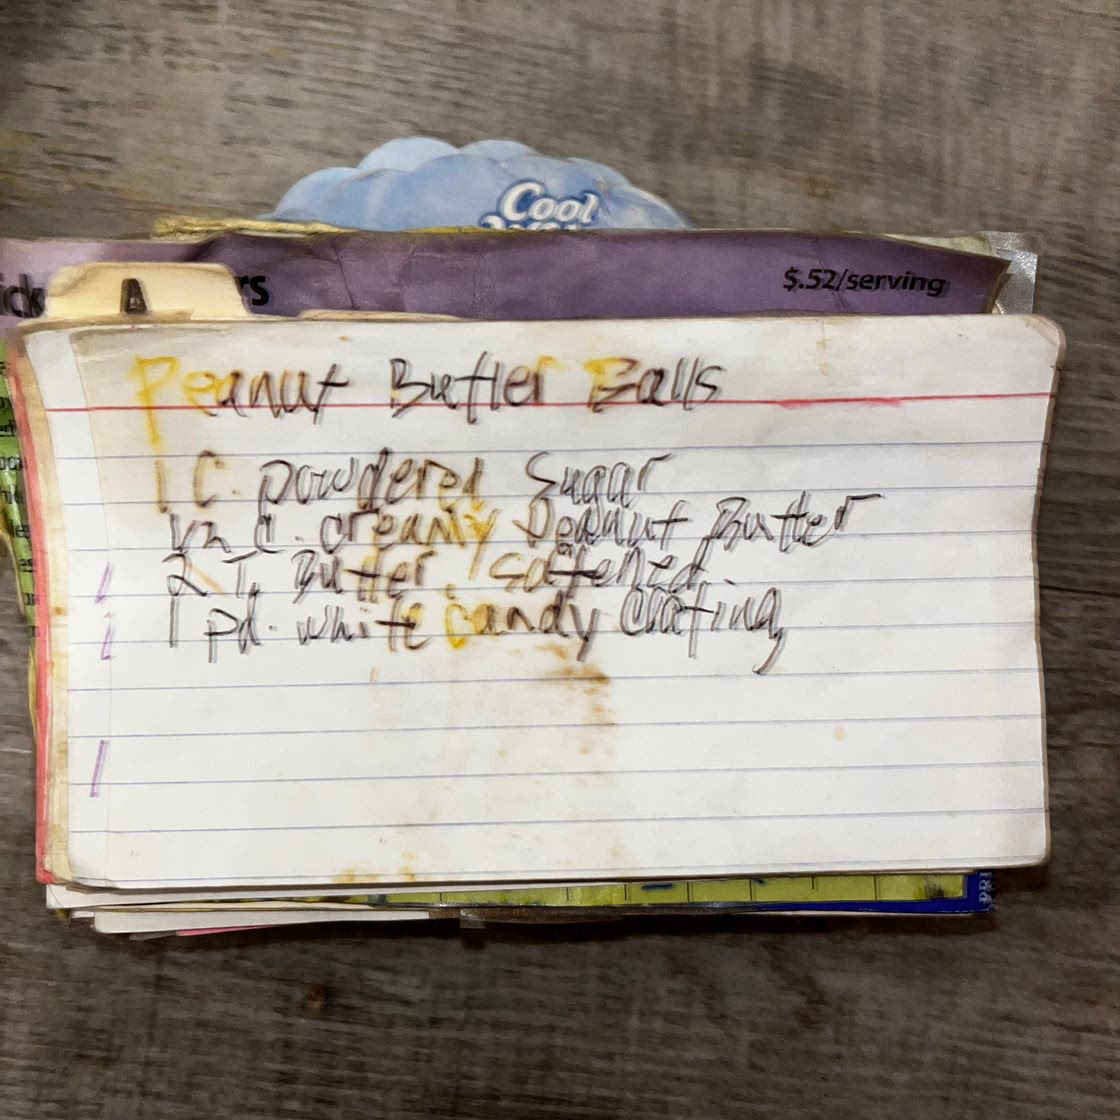 Cool
ick
A
rs
$.52/serving
Peanut Butter Balls
1 C. powdered Sugar
1/2 C. creamy Peanut Butter
2 T. Butter, softened.
1 pd. white Candy Coating
PRI